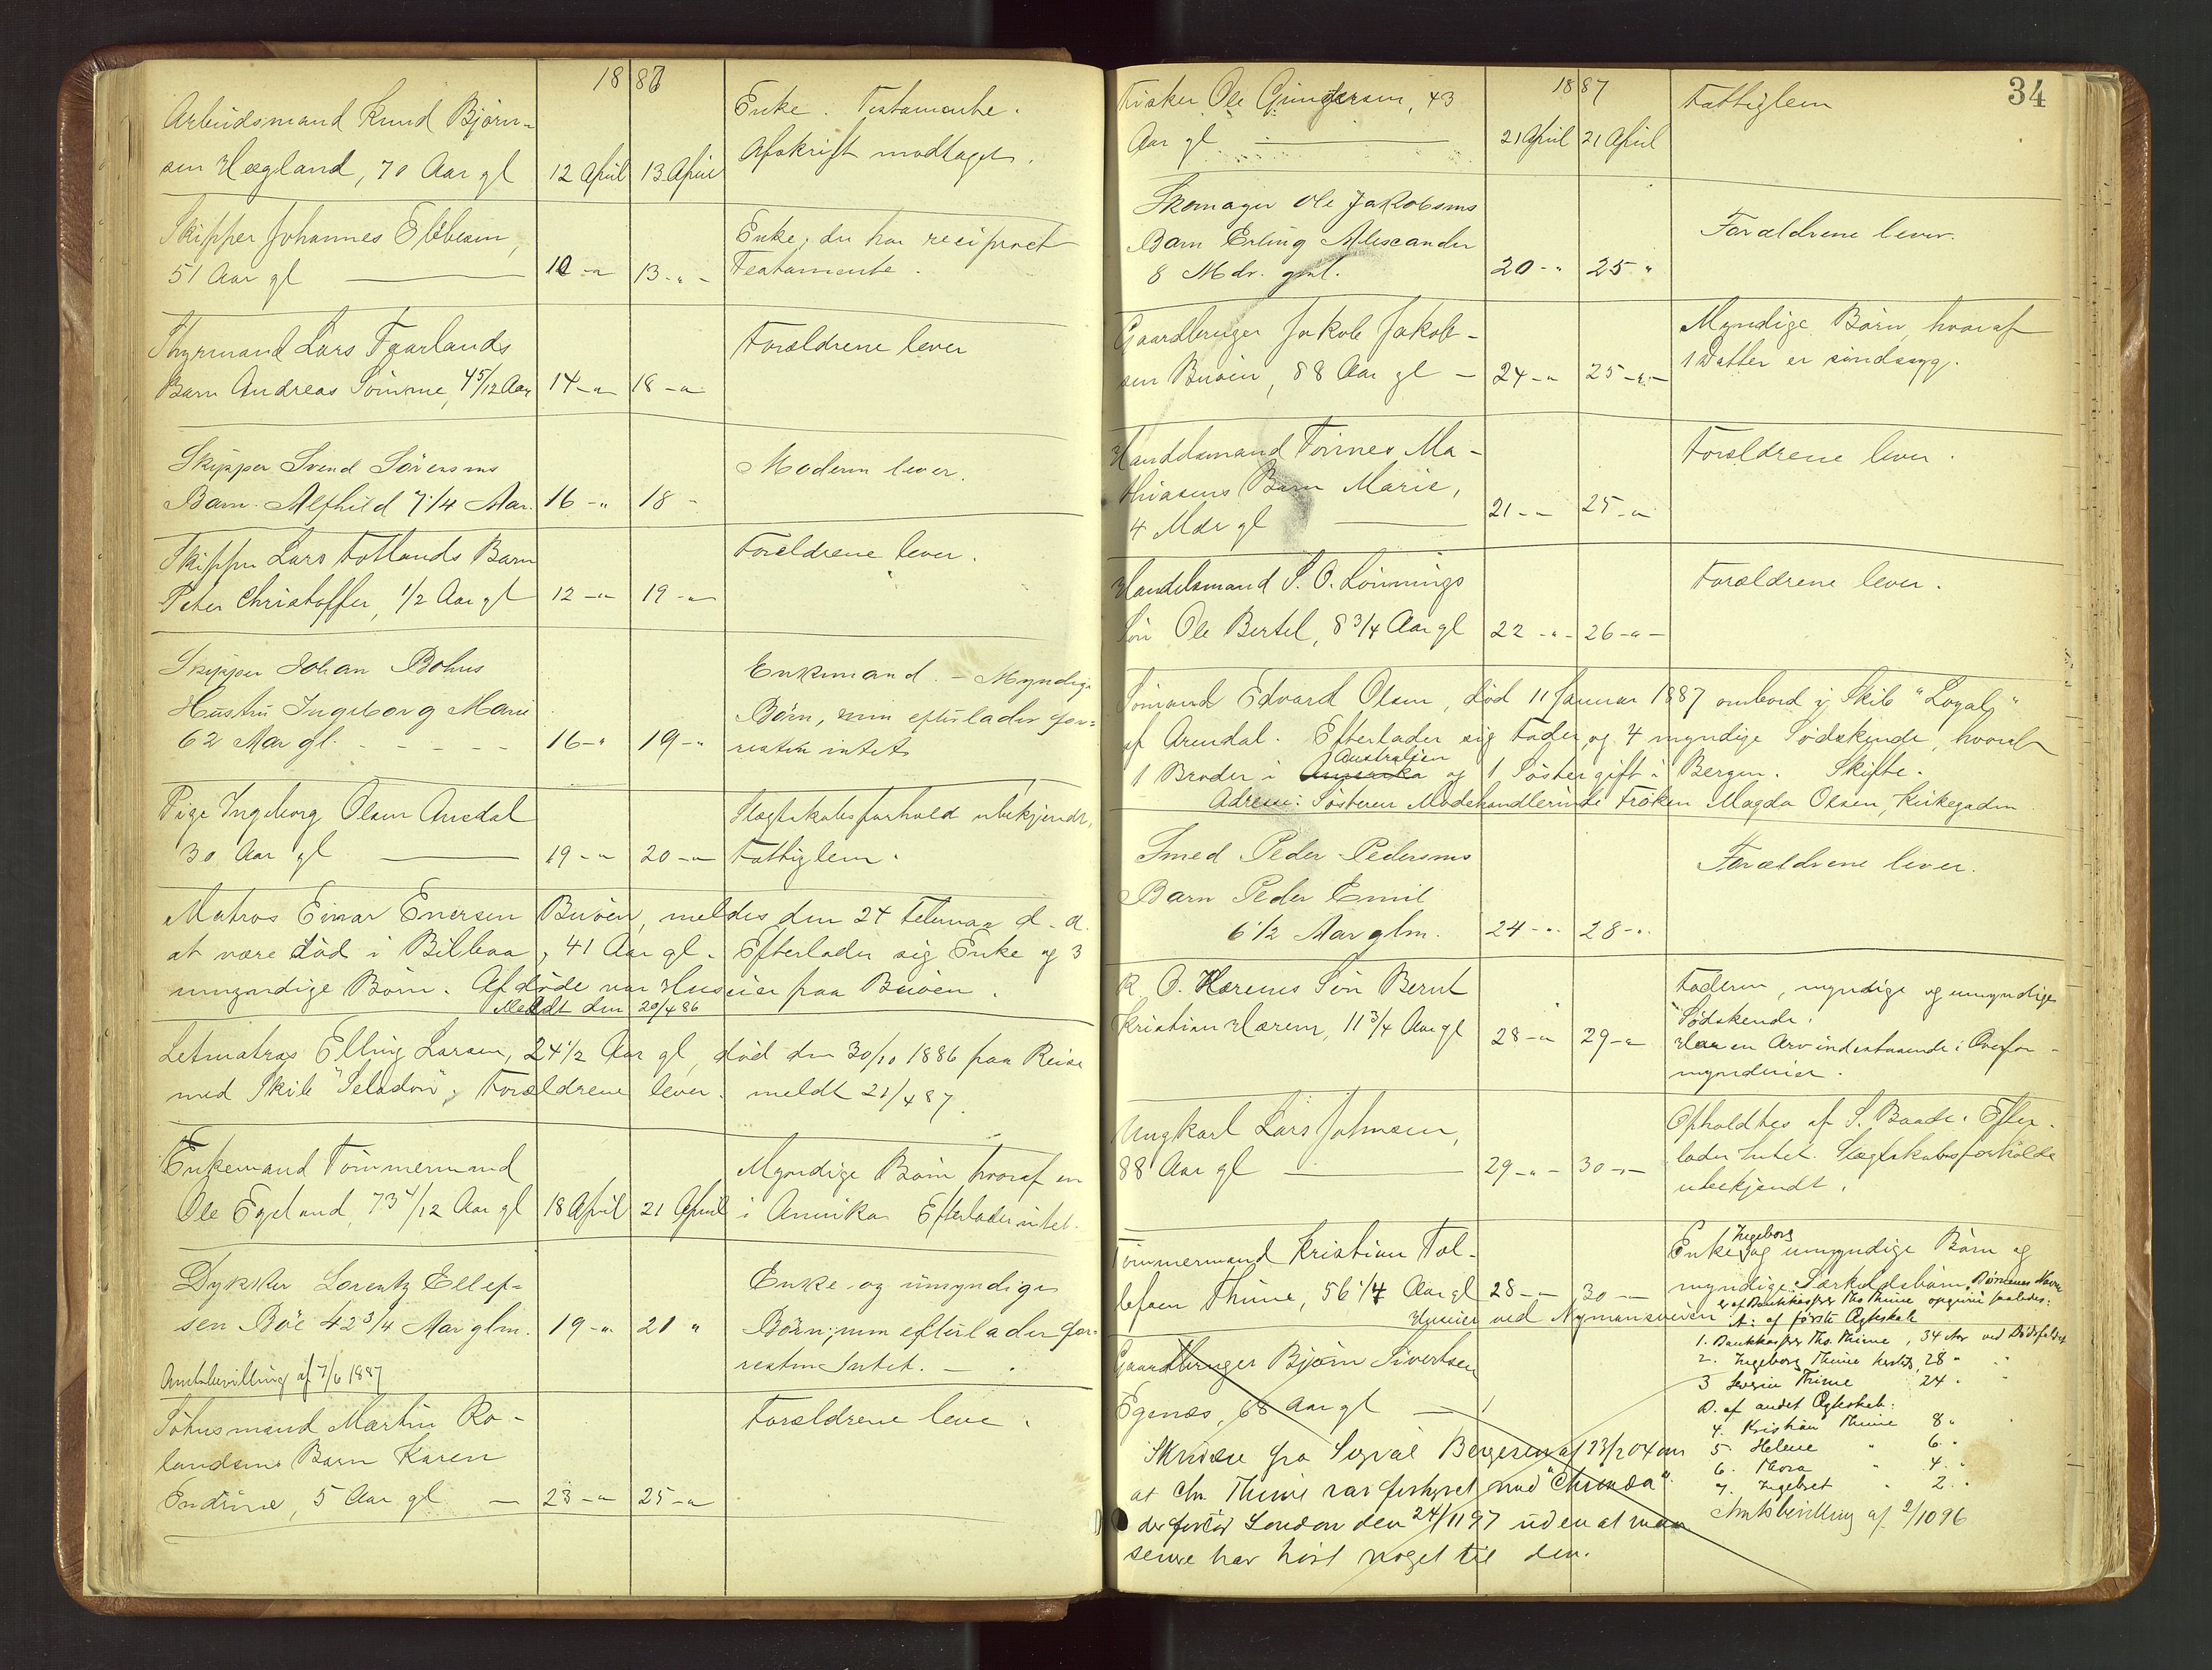 1887
Arbeidsmand Knud Bjørn-
sen Hægland, 70 Aar gl 12 April 13 April
Enke. Testamente.
Afskrift modtaget.
Skipper Johannes Ebbesen,
51 Aar gl 10 - " 13 - " -
Enke, der har reciproct
Testamente.
Styrmand Lars Faarlands
Barn Andreas Sømme, 4 5/12 Aar 14 - " 18 - "
Forældrene lever
Skipper Svend Sørensens
Barn Alfhild 7 1/4 Aar. 16 - " 18 -
Moderen lever.
Skipper Lars Fotlands Barn
Peter Christoffer, 1/2 Aar gl 12 - " 19 - "
Forældrene lever.
Skipper Johan Bohus
Hustru Ingeborg Marie
62 Aar gl. - - - - - 16 - " 19 - "
Enkemand. - Myndige
Børn, men efterlader for-
resten intet
Pige Ingeborg Olsen Ausdal
30 Aar gl 19 - " 20 - "
Slægtskabsforhold ubekjendt,
Fattiglem.
Matros Einar Enersen Buøen, meldes den 24 Februar d. a.
at være død i Bilbao, 41 Aar gl. Efterlader sig Enke og 3
umyndige Børn. Afdøde var Huseier paa Buøen.
Meldt den 20/4 86
Letmatros Elling Larsen, 24 1/2 Aar gl, død den 30/10 1886 paa Reise
med Skib "Seladon", Forældrene lever. meldt 21/4 87.
Enkemand Tømmermand
Ole Egeland, 73 4/12 Aar gl 18 April 21 April
Myndige Børn, hvoraf en
i Amerika Efterlader intet.
Dykker Lorentz Ellef-
sen Bøe 42 3/4 Aar glm. 19 - " 21 "
Enke og umyndige
Børn, men efterlader for-
resten Intet. -
Amtsbevilling af 7/6 1887
Søhusmand Martin Ro-
landsens Barn Karen
Endrine, 5 Aar gl - 23 - " 25 - "
Forældrene leve.
34
1887
Fisker Ole Gundersen, 43
Aar gl 21 April 21 April
Fattiglem
Skomager Ole Jakobsens
Barn Erling Alexander
8 Mdr. gml. 20 - " 25 "
Forældrene lever.
Gaardbruger Jakob Jakob-
sen Buøen, 88 Aar gl - 24 - " 25 - " -
Myndige Børn, hvoraf
1 Datter er sindssyg.
Handelsmand Tønnes Ma-
thiasens Barn Marie,
4 Mdr gl 21 - " 25 - "
Forældrene lever.
Handelsmand S. O. Lønnings
Søn Ole Bertel, 8 3/4 Aar gl 22 - " - 26 - " -
Forældrene lever.
Sømand Edvard Olsen, død 11 Januar 1887 ombord i Skib "Loyal"
af Arendal. Efterlader sig Fader og 4 myndige Sødskende, hvoraf
1 Broder i Amerika Australien og 1 Søster gift i Bergen. Skifte.
Adresse: Søsteren Modehandlerinde Frøken Magda Olsen, Kirkegaden
Smed Peder Pedersens
Barn Peder Emil
6 1/2 Aar glm. 24 - " 28 - "
Forældrene lever.
R. O. Harems Søn Bernt
Kristian Harem, 11 3/4 Aar gl 28 - " 29 - "
Faderen, myndige og umyndige
Sødskende.
Har en Arv indestaaende i Overfor-
mynderiet.
Ungkarl Lars Johnsen,
88 Aar gl 29 - " - 30 - " -
Opholdtes af S. Baade. Efter-
lader Intet. Slægtskabsforholde
ubekjendt.
Tømmermand Kristian Tol-
lefsen Thime, 56 1/4 Aar gl 28 - " 30 - "
Huseier ved Nymansveien
Enke Ingeborg og umyndige Børn og
myndige Særkuldsbørn. Børnenes Navne
er af Bankkasserer Ths Thime opgivne saaledes:
A: af første Ægteskab
1. Bankkasserer Ths. Thime, 34 Aar ved Dødsfaldet
2. Ingeborg Thime 28 "
3 Severin Thime 24 "
B. af andet Ægteskab:
4. Kristian Thime 8 "
5. Helene " 6 "
6. Thora " 4 "
7. Ingebret " 2 "
Amtsbevilling af 2/10 96
Gaardbruger Bjørn Sivertsen
Egenæs, 68 Aar gl
Skrivelse fra Sigval Bergesen af 23/2 04 om
at Chr. Thime var forhyret med "Chrunda"
der forlod London den 24/11 97 uden at man
senere har hørt noget til den.